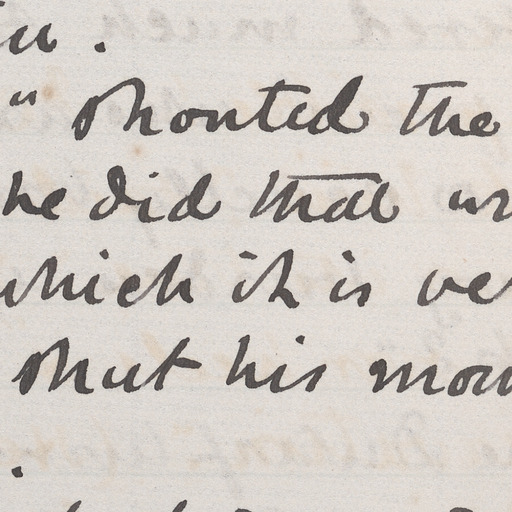 " shouted the
he did that
which it is
shut his